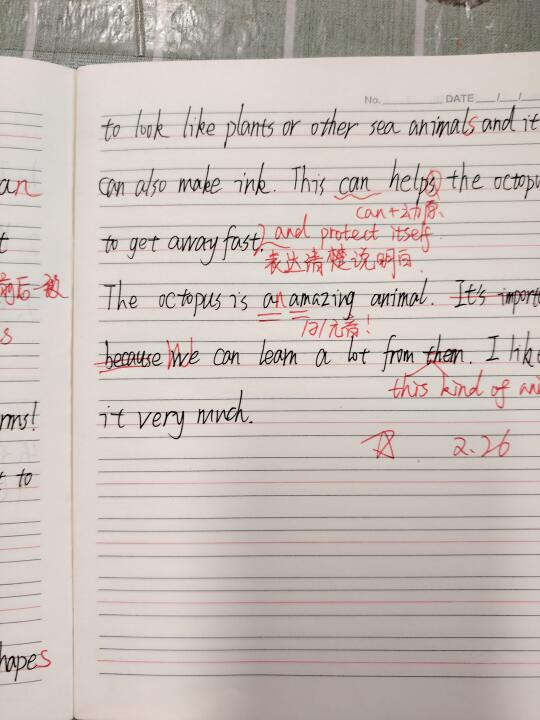 No. DATE / /
to look like plants or other sea animals and it
can also make ink. This can helps the
can+动原
to get away fast. and protect itself.
表达清楚说明白.
The octopus is an amazing animal. It's
/ə/元音!
because We can learn a lot from them. I
this kind of
it very much.
2.26
an
t
前后一致
s
rms!
t to
hapes